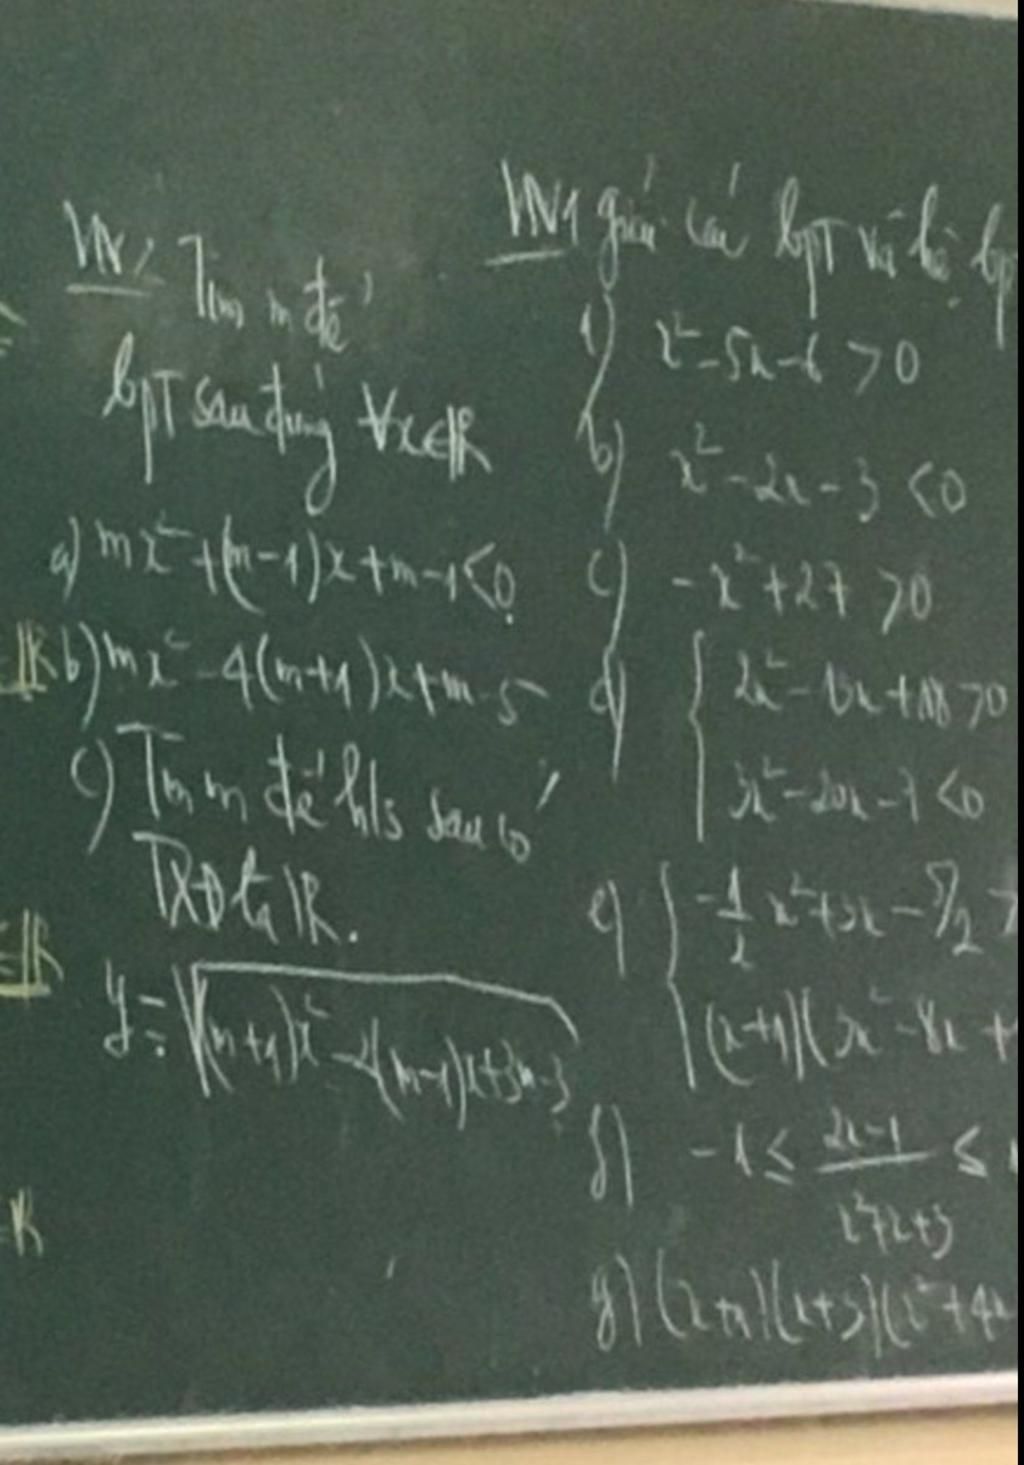 Tìm m để
bpT sau đúng ∀x∈R
a) mx²+(m-1)x+m-1<0
b) mx²-4(m+1)x+m-5
c) Tìm m để h/s sau có
TXĐ là R.
y=√((m+1)x²-2(m-1)x+3m-3)
VN1 giải các bpT và hệ bp
x²-5x-6>0
b) x²-2x-3<0
c) -x²+27>0
d) 
3x²-20x-7<0
e) -1/2 x²+3x-5/2
(x+1)(3x²-8x+
f) -1≤ (2x-1)/(x²+x+3) ≤
g) (x+1)(x+3)(x²+4x
R
∈R
R